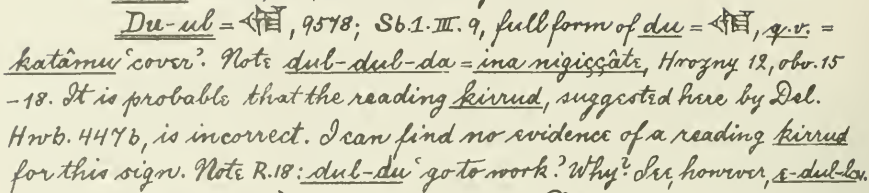 Du-ul = 𒌋𒌆, 9578; Sb.1.III.9, full form of du = 𒌋𒌆, q.v. =
katâmu 'cover'. Note dul-dul-da = ina nigiççâte, Hrozny 12, obv. 15
-18. It is probable that the reading kirrud, suggested here by Del.
Hwb. 447b, is incorrect. I can find no evidence of a reading kirrud
for this sign. Note R.18: dul-du 'go to work? Why? See, however, e-dul-la.